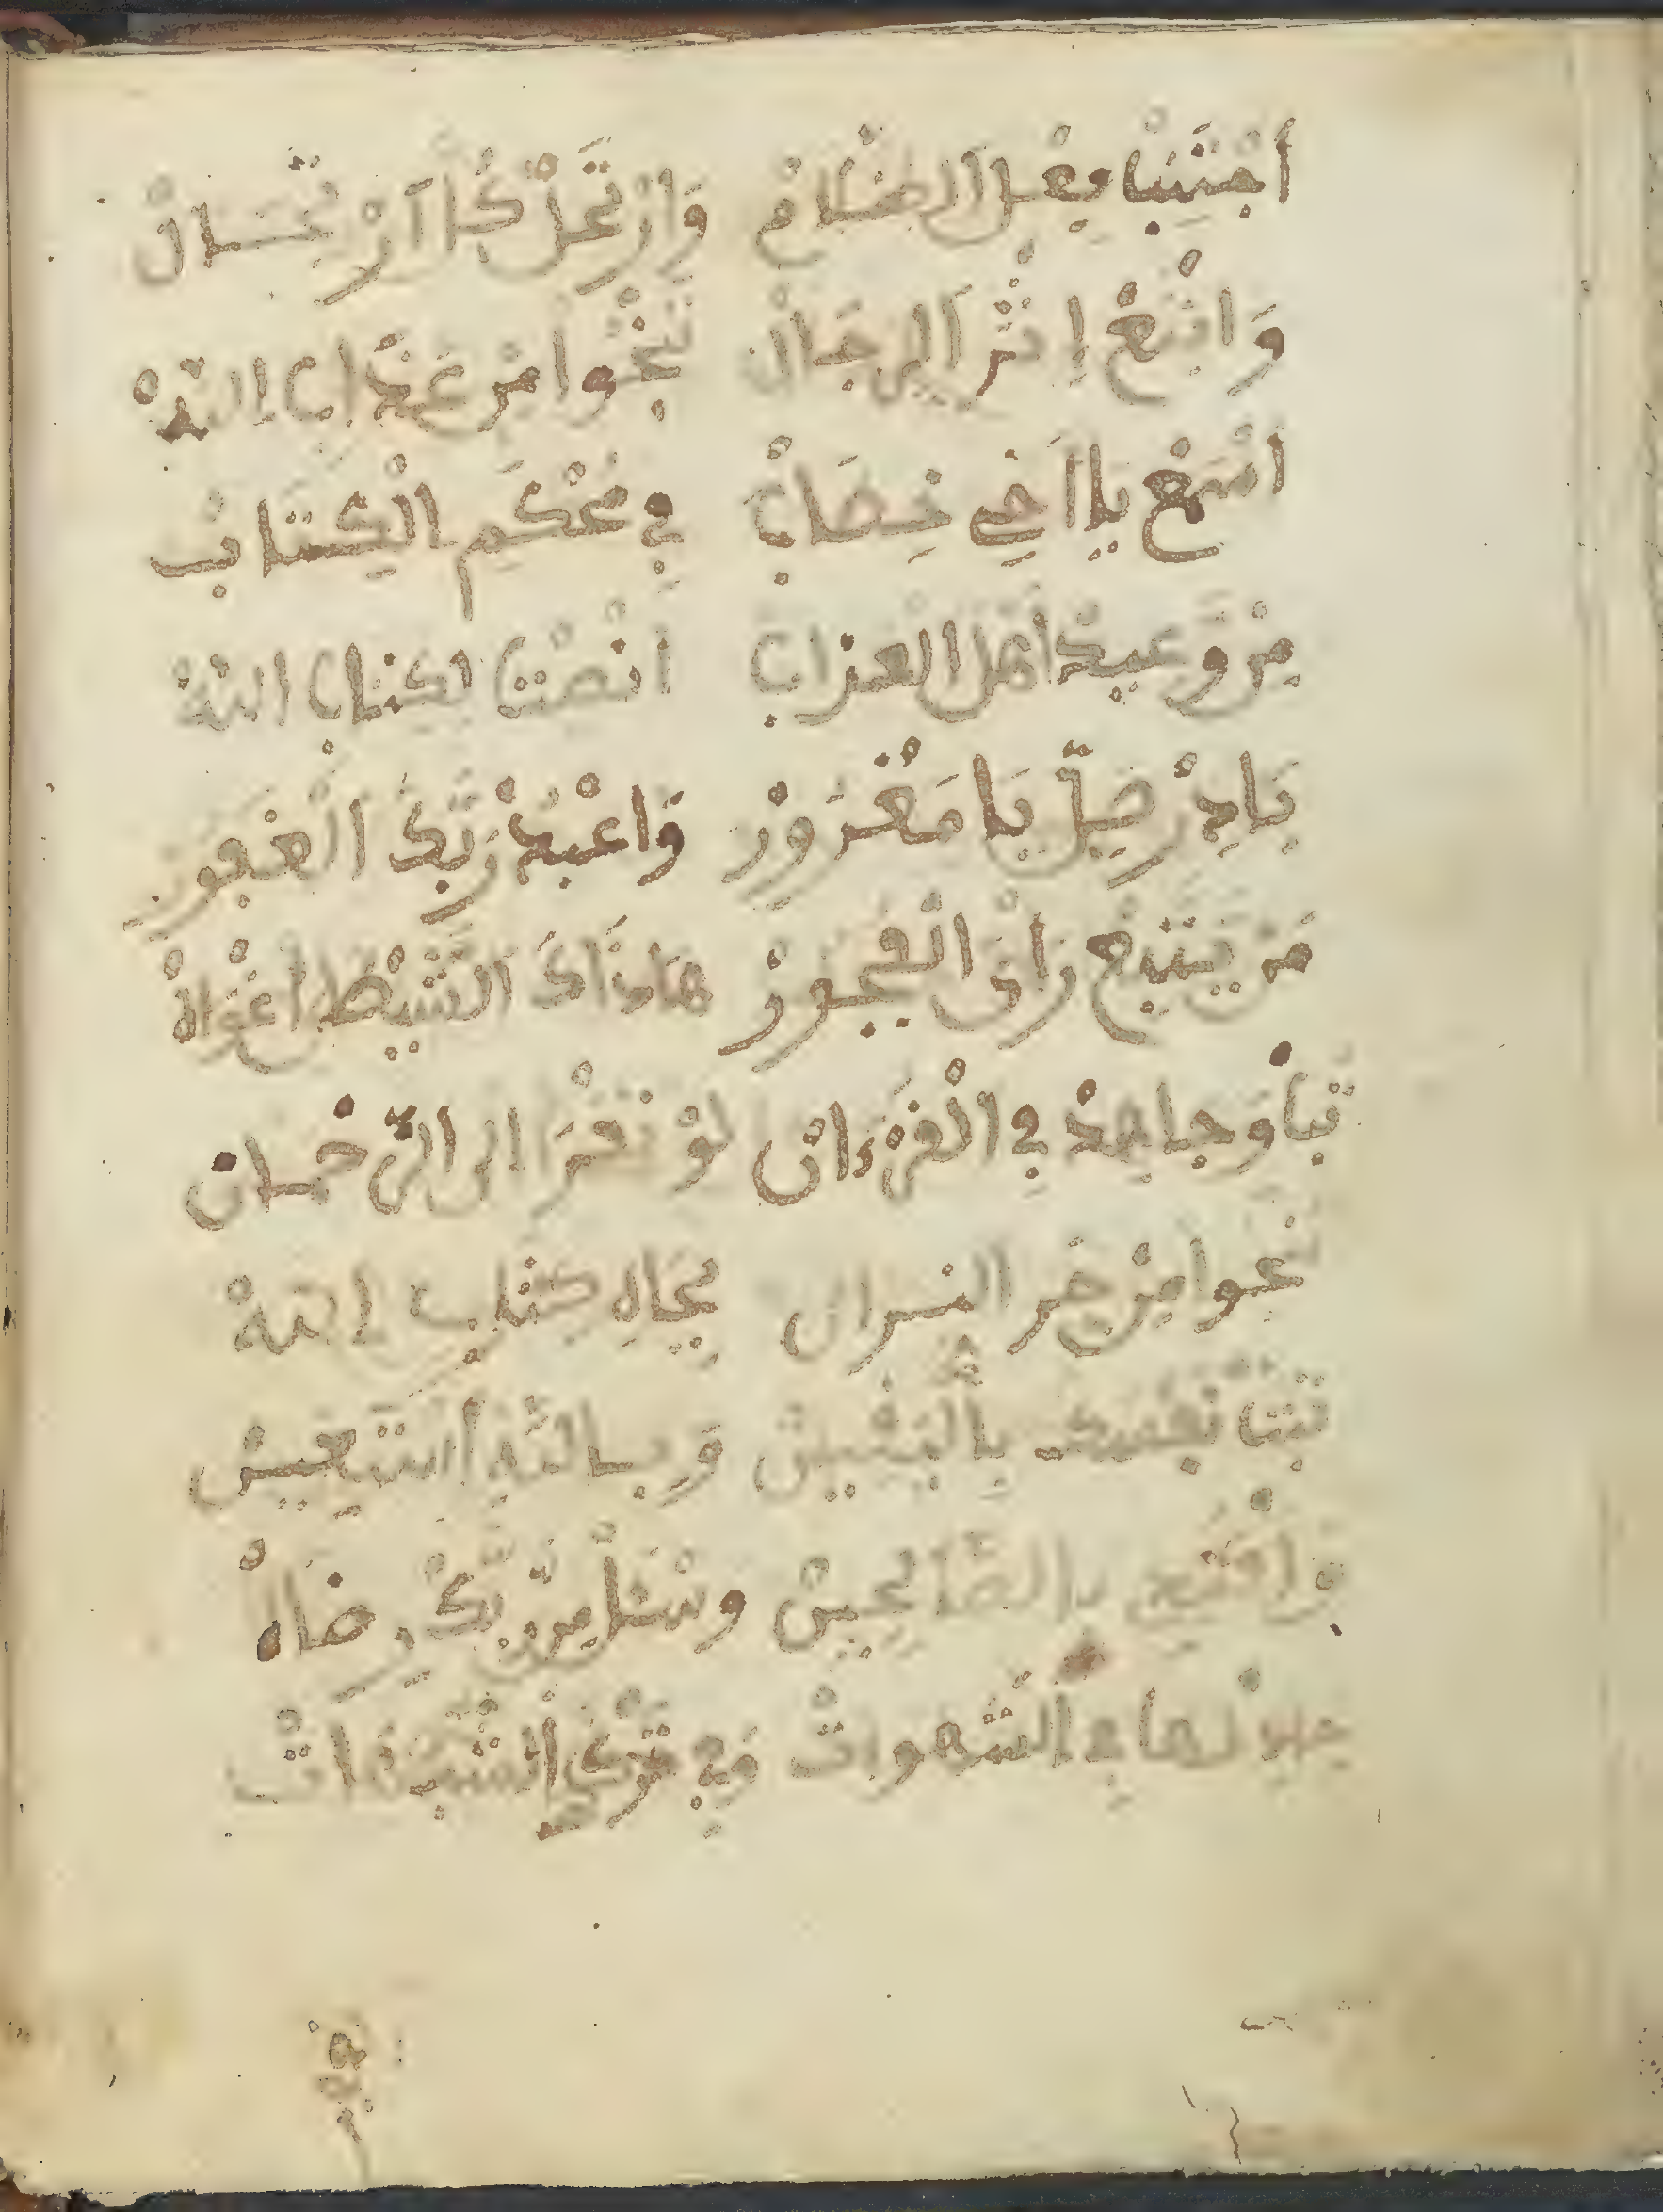 اجْتَنِبْ افِعْل الضَّلَامْ وَارْتَحَلْ كُل آرْتِحَالْ
وَاتْبَعْ إِثْرَ الرِجَالْ تَنْجُوا مِنْ عَذَابِ اللهْ
اسْمَعْ يَا اَخِي خِطَابْ فِي مُحْكَمِ الْكِتَابْ
مِنْ وَعِيدْ اهْل العذابْ انْصِتْ لكتابِ اللهْ
بَادِرْ صَلِّ يَا مَغْرُورْ وَاعْبُدْ رَبَّكَ الْغَفُورْ
مَنْ يَتْبَعْ رَاىَ الْفُجُورْ هَاذَاكَ الشَّيْطَنْ اغْوَاهْ
تب وَجاهِدْ فِي الْقُرْءَانْ الى الرّحمان
تنجوا مِنْ حَر النيران بِجَاهِ كتابِ اللهْ
نفسك بِاليَقِينْ وَبالله اسْتَعِينْ
وَاقْتَدِ بالصَّالِحِينْ وسْئلْ مِنْ رَّبِّكْ رِضَاهْ
فِي الشَّهواتْ وَفِي تَرْكِ